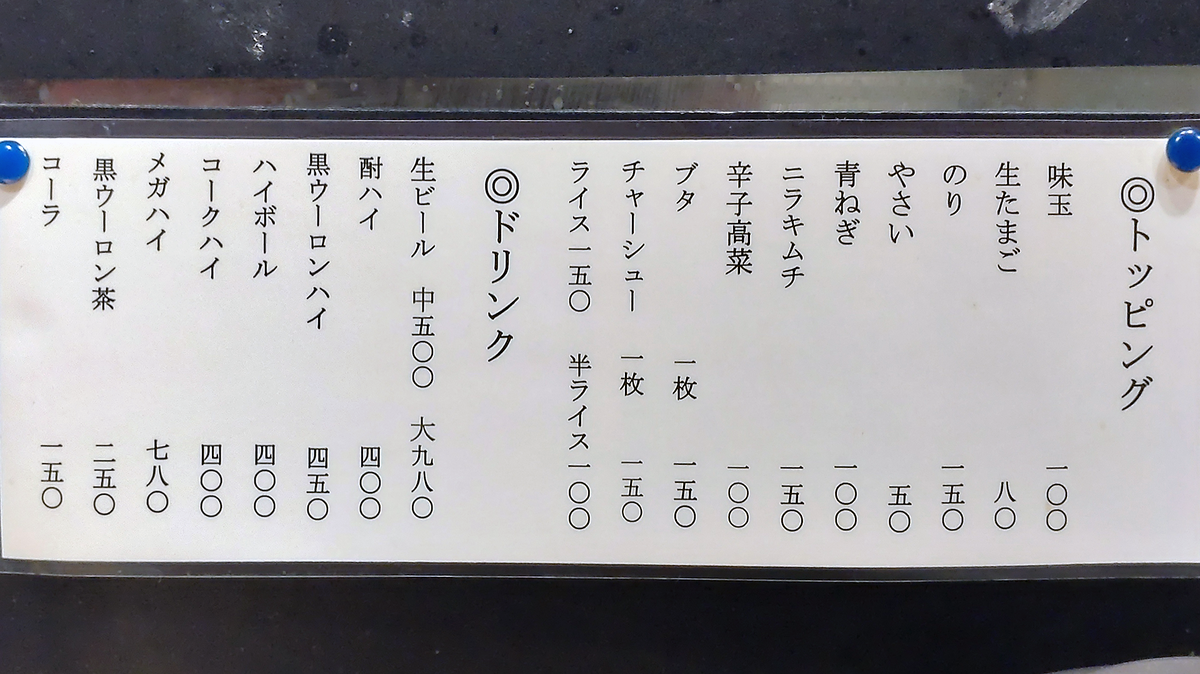 ◎トッピング
味玉 一〇〇
生たまご 八〇
のり 一五〇
やさい 五〇
青ねぎ 一〇〇
ニラキムチ 一五〇
辛子高菜 一〇〇
ブタ 一枚 一五〇
チャーシュー 一枚 一五〇
ライス一五〇 半ライス一〇〇
◎ドリンク
生ビール 中五〇〇 大九八〇
酎ハイ 四〇〇
黒ウーロンハイ 四五〇
ハイボール 四〇〇
コークハイ 四〇〇
メガハイ 七八〇
黒ウーロン茶 二五〇
コーラ 一五〇